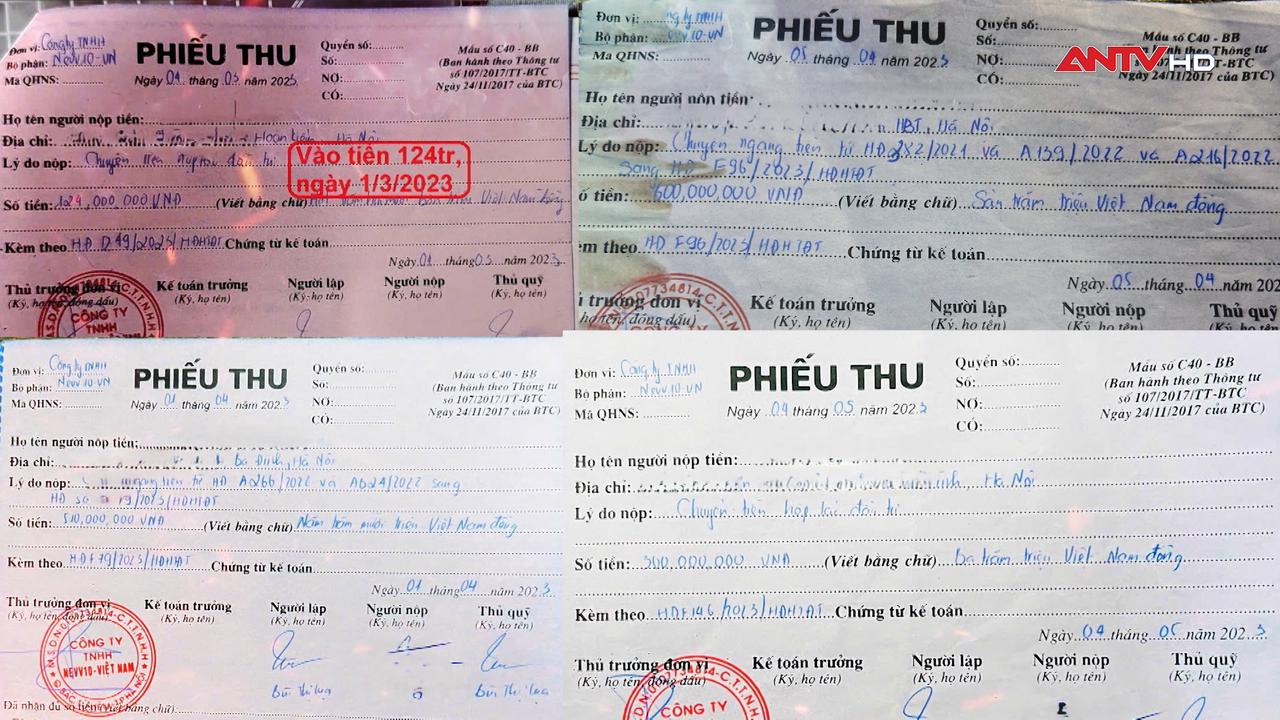 Đơn vị: Công ty TNHH
Bộ phận: Nevv10-VN
Mã QHNS:
PHIẾU THU
Ngày 01 tháng 03 năm 2023
Quyển số:
Số:
NỢ:
CÓ:
Mẫu số C40 - BB
(Ban hành theo Thông tư
số 107/2017/TT-BTC
Ngày 24/11/2017 của BTC)
Họ tên người nộp tiền:
Địa chỉ: Hà Nội
Lý do nộp: Chuyển tiền
Vào tiền 124tr,
ngày 1/3/2023
Số tiền: 124,000,000 VNĐ (Viết bằng chữ) Việt Nam đồng
Kèm theo HĐ D49/2023/HĐHTĐT Chứng từ kế toán
Ngày 01 tháng 03 năm 2023
Thủ trưởng đơn vị Kế toán trưởng Người lập Người nộp Thủ quỹ
(Ký, họ tên, đóng dấu) (Ký, họ tên) (Ký, họ tên) (Ký, họ tên) (Ký, họ tên)
CÔNG TY
TNHH
ANTV HD
Đơn vị:
Bộ phận:
Mã QHNS:
PHIẾU THU
Ngày 05 tháng 04 năm 2023
Quyển số:
Số:
NỢ:
CÓ:
Mẫu số C40 - BB
(Ban hành theo Thông tư
Ngày 24/11/2017 của BTC)
Họ tên người nộp tiền:
Địa chỉ: HBT, Hà Nội
Lý do nộp: Chuyển ngang tiền từ HĐ 282/2021 và A139/2022 và A216/2022
sang HĐ F96/2023/HĐHTĐT
ố tiền: 600,000,000 VNĐ (Viết bằng chữ) Sáu trăm triệu Việt Nam đồng
èm theo HĐ F96/2023/HĐHTĐT Chứng từ kế toán
Ngày 05 tháng 04 năm 202
trưởng đơn vị Kế toán trưởng Người lập Người nộp Thủ quỹ
họ tên, đóng dấu) (Ký, họ tên) (Ký, họ tên) (Ký, họ tên)
CÔNG TY
Đơn vị: Công ty TNHH
Bộ phận: Nevv10-VN
Mã QHNS:
PHIẾU THU
Ngày 01 tháng 04 năm 2023
Quyển số:
Số:
NỢ:
CÓ:
Mẫu số C40 - BB
(Ban hành theo Thông tư
số 107/2017/TT-BTC
Ngày 24/11/2017 của BTC)
Họ tên người nộp tiền:
Địa chỉ: Ba Đình, Hà Nội
Lý do nộp: ngang tiền từ HĐ A266/2022 và A624/2022 sang
HĐ số F79/2023/HĐHTĐT
Số tiền: 510,000,000 VNĐ (Viết bằng chữ) Năm trăm mười triệu Việt Nam đồng
Kèm theo HĐ F79/2023/HĐHTĐT Chứng từ kế toán
Ngày 01 tháng 04 năm 2023
Thủ trưởng đơn vị Kế toán trưởng Người lập Người nộp Thủ quỹ
(Ký, họ tên, đóng dấu) (Ký, họ tên) (Ký, họ tên) (Ký, họ tên) (Ký, họ tên)
CÔNG TY
TNHH
NEVV10-VIỆT NAM
Đã nhận đủ số tiền (Viết bằng chữ)
Đơn vị: Công ty TNHH
Bộ phận: Nevv10-VN
Mã QHNS:
PHIẾU THU
Ngày 04 tháng 05 năm 2023
Quyển số:
Số:
NỢ:
CÓ:
Mẫu số C40 - BB
(Ban hành theo Thông tư
số 107/2017/TT-BTC
Ngày 24/11/2017 của BTC)
Họ tên người nộp tiền:
Địa chỉ: Hà Nội
Lý do nộp: Chuyển tiền hợp tác đầu tư
Số tiền: 300,000,000 VNĐ (Viết bằng chữ) Ba trăm triệu Việt Nam đồng
Kèm theo HĐ F146/2023/HĐHTĐT Chứng từ kế toán
Ngày 04 tháng 05 năm 2023
Thủ trưởng đơn vị Kế toán trưởng Người lập Người nộp Thủ quỹ
(Ký, họ tên, đóng dấu) (Ký, họ tên) (Ký, họ tên) (Ký, họ tên) (Ký, họ tên)
CÔNG TY